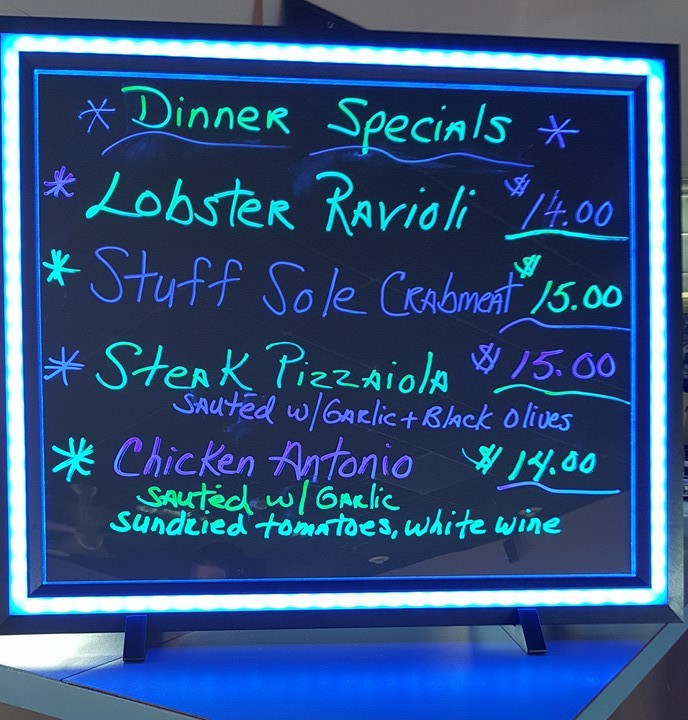 * Dinner Specials *
* Lobster Ravioli $14.00
* Stuff Sole Crabmeat $15.00
* Steak Pizzaiola $15.00
Sautéd w/Garlic + Black Olives
* Chicken Antonio $14.00
Sautéd w/ Garlic
Sundried tomatoes, white wine